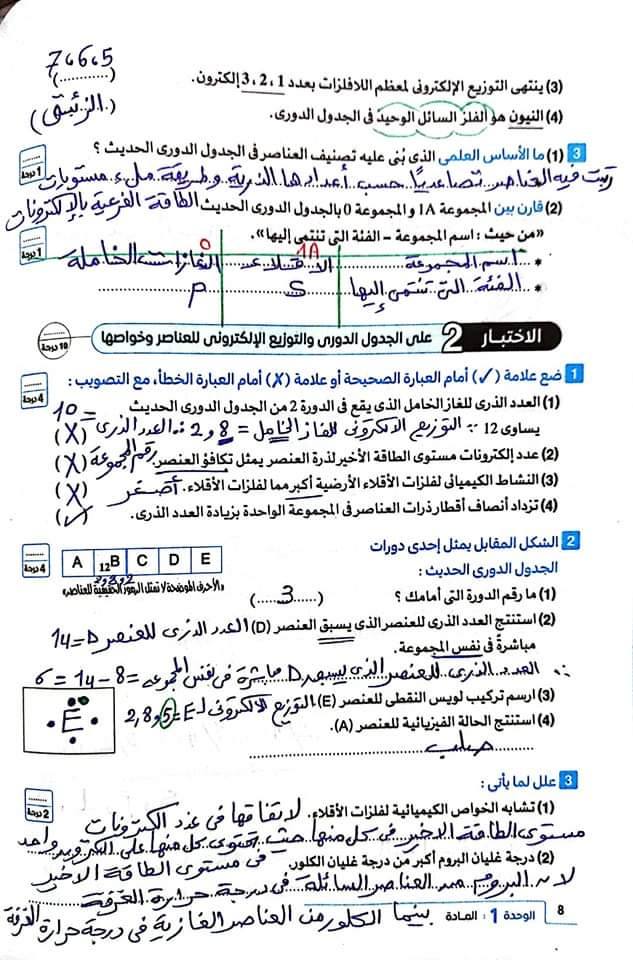 7،6،5
(............)
(3) ينتهى التوزيع الإلكترونى لمعظم اللافلزات بعدد 1 ، 2 ، 3 إلكترون.
(4) النيون هو الفلز السائل الوحيد فى الجدول الدورى. (الزئبق)
3 (1) ما الأساس العلمى الذى بُنى عليه تصنيف العناصر فى الجدول الدورى الحديث ؟
1 درجة
رتبت فيه العناصر تصاعدياً حسب أعدادها الذرية وطريقة ملء مستويات
الطاقة الفرعية بالإلكترونات
(2) قارن بين المجموعة 1A و المجموعة 0 بالجدول الدورى الحديث
«من حيث : اسم المجموعة – الفئة التى تنتمى إليها».
1 درجة
1A 0
* اسم المجموعة الاقلاء الغازات الخاملة
* الفئة التى تنتمى إليها S P
الاختبار 2 على الجدول الدورى والتوزيع الإلكترونى للعناصر وخواصها
10 درجة
1 ضع علامة (✓) أمام العبارة الصحيحة أو علامة (✗) أمام العبارة الخطأ، مع التصويب :
4 درجة
(1) العدد الذرى للغاز الخامل الذى يقع فى الدورة 2 من الجدول الدورى الحديث
يساوى 12 ∵ التوزيع الالكترونى للغاز الخامل = 8 و 2 ∴ العدد الذرى = 10 (X)
(2) عدد إلكترونات مستوى الطاقة الأخير لذرة العنصر يمثل تكافؤ العنصر. رقم المجموعة (X)
(3) النشاط الكيميائى لفلزات الأقلاء الأرضية أكبر مما لفلزات الأقلاء. أصغر (X)
(4) تزداد أنصاف أقطار ذرات العناصر فى المجموعة الواحدة بزيادة العدد الذرى. (✓)
2 الشكل المقابل يمثل إحدى دورات
الجدول الدورى الحديث :
4 درجة
A 12B C D E
2و8و2
«الأحرف الموضحة لا تمثل الرموز الحقيقية للعناصر»
(1) ما رقم الدورة التى أمامك ؟ (3)
(2) استنتج العدد الذرى للعنصر الذى يسبق العنصر (D) العدد الذرى للعنصر D = 14
مباشرةً فى نفس المجموعة.
∴ العدد الذرى للعنصر الذى يسبق D مباشرة فى نفس المجموعة = 8 - 14 = 6
(3) ارسم تركيب لويس النقطى للعنصر (E) التوزيع الالكترونى لـ E = 2,8,5
E
(4) استنتج الحالة الفيزيائية للعنصر (A).
صلب
3 علل لما يأتى :
2 درجة
(1) تشابه الخواص الكيميائية لفلزات الأقلاء. لاتفاقها فى عدد الكترونات
مستوى الطاقة الاخير فى كل منها حيث تحتوى كل منها على الكترون واحد
فى مستوى الطاقة الاخير
(2) درجة غليان البروم أكبر من درجة غليان الكلور.
لان البروم من العناصر السائلة فى درجة حرارة الغرفة
بينما الكلور من العناصر الغازية فى درجة حرارة الغرفة
8 الوحدة 1 : المادة